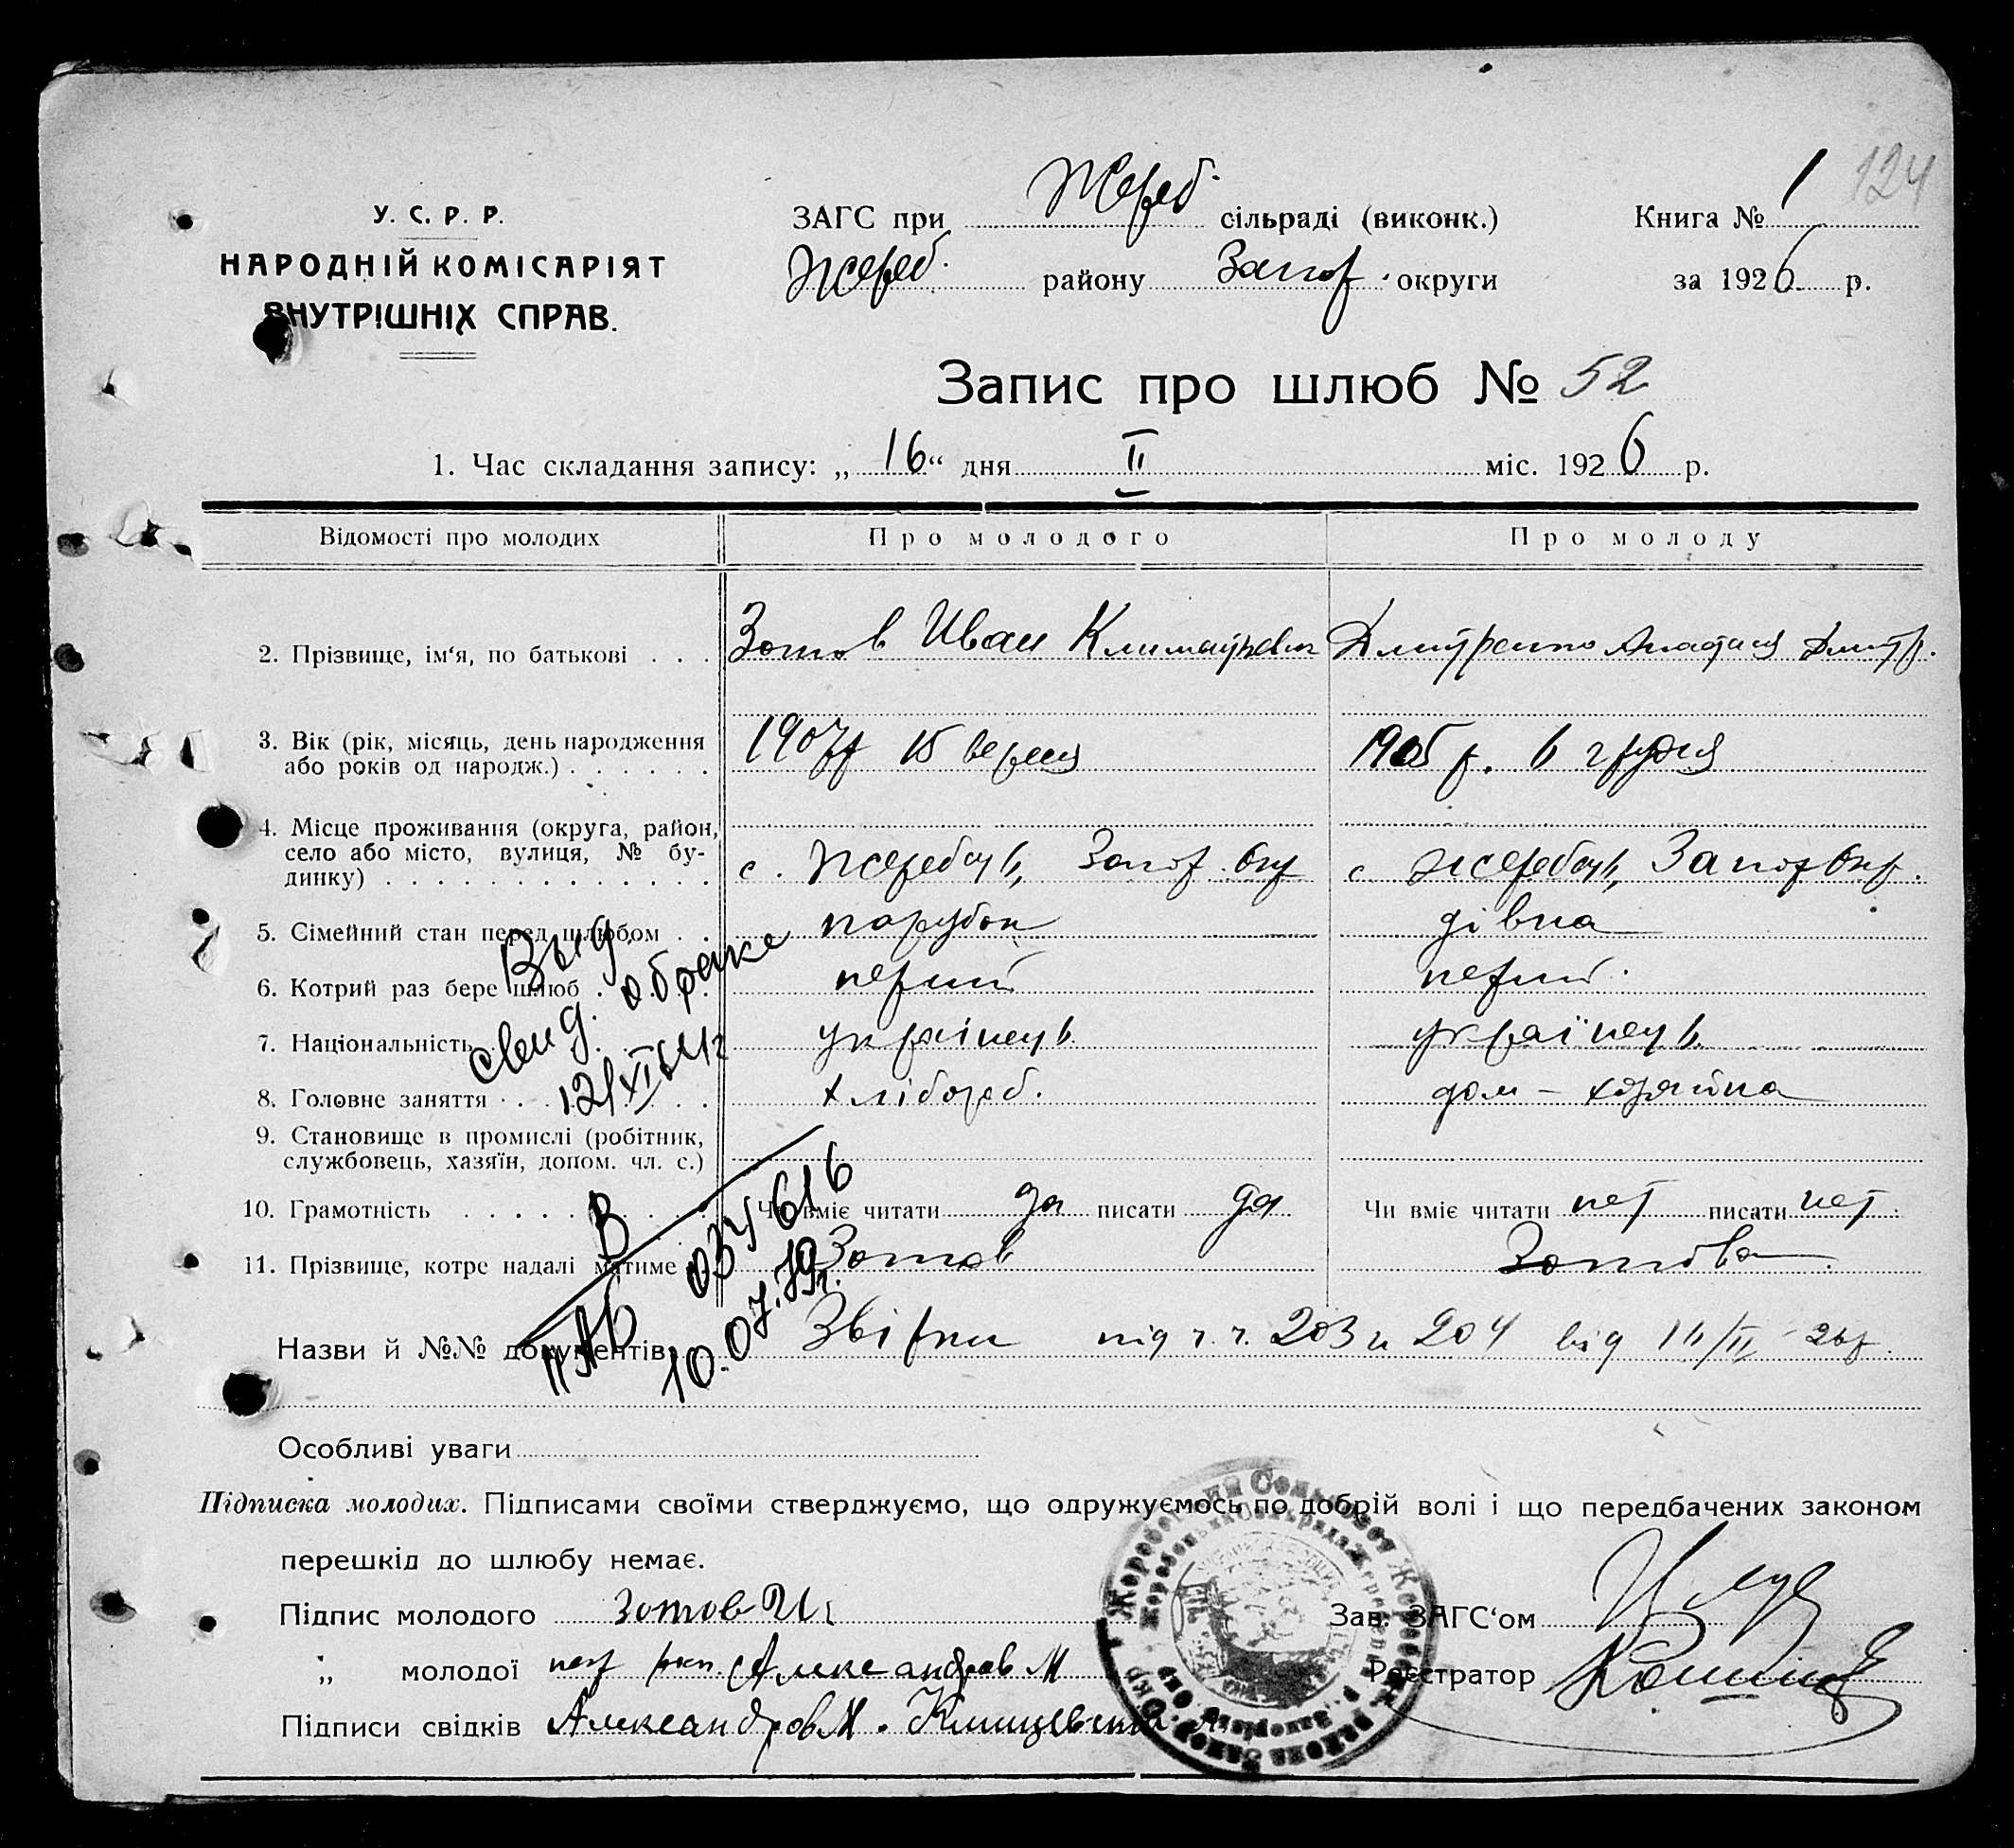 124
У. С. Р. Р.
НАРОДНІЙ КОМІСАРІЯТ
ВНУТРІШНІХ СПРАВ.
ЗАГС при Жереб. сільраді (виконк.)
Жереб. району Запор. округи
Книга № 1
за 1926 р.
Запис про шлюб № 52
1. Час складання запису: „16“ дня II міс. 1926 р.
Відомості про молодих Про молодого Про молоду
2. Прізвище, ім‘я, по батькові . . . Зотов Иван Дмитр.
3. Вік (рік, місяць, день народження 1907р 15 вересня 1905 р. 6 грудня
або років од народж.) . . . . . .
4. Місце проживання (округа, район,
село або місто, вулиця, № бу- с. Жеребець, Запор. Окр с Жеребець, Запор Окр.
динку) . . . . . . . . . . . . .
5. Сімейний стан перед шлюбом . . парубок дівка
6. Котрий раз бере шлюб . . . . перший перший
7. Національність українець українець
8. Головне заняття . . . . хлібороб. дом – хозяйка
9. Становище в промислі (робітник,
службовець, хазяїн, допом. чл. с.)
10. Грамотність . . . . . . . . . Чи вміє читати да писати да Чи вміє читати нет писати нет
11. Прізвище, котре надалі матиме Зотов Зотова
Выд.
свид. о браке
12/XI 64г
II АБ
10.07.79г.
Назви й №№ документів Звірки під ч. ч. 203 и 204 від 16/II 26р.
Особливі уваги
Підписка молодих. Підписами своїми стверджуємо, що одружуємось по добрій волі і що передбачених законом
перешкід до шлюбу немає.
Підпис молодого Зотов И
Зав. ЗАГС‘ом
„ молодої Александров М
Реєстратор
Підписи свідків Александров М.